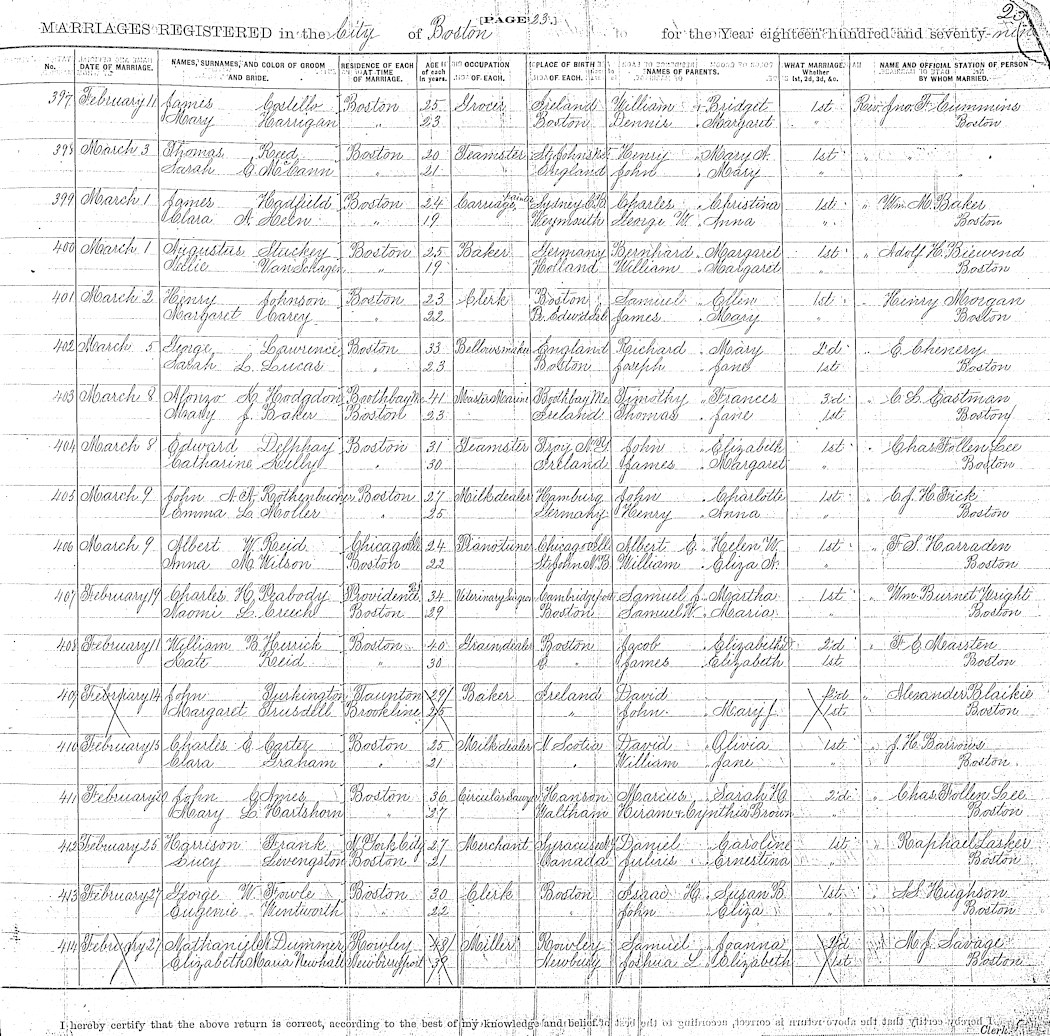 [PAGE 23.]
23
MARRIAGES REGISTERED in the City of Boston for the Year eighteen hundred and seventy-nine
No. DATE OF MARRIAGE. NAMES, SURNAMES, AND COLOR OF GROOM AND BRIDE. RESIDENCE OF EACH AT TIME OF MARRIAGE. AGE of each in years. OCCUPATION OF EACH. PLACE OF BIRTH OF EACH. NAMES OF PARENTS. WHAT MARRIAGE. Whether 1st, 2d, 3d, &c. NAME AND OFFICIAL STATION OF PERSON BY WHOM MARRIED.
397 February 11 James Costello Boston 25 Grocer Ireland William & Bridget 1st Rev. Jno. F. Cummins
Mary Harrigan " 23 Boston Dennis " Margaret " Boston
398 March 3 Thomas Reed Boston 20 Teamster St. Johns Henry " Mary A. 1st " " "
Sarah E. McCann " 21 England John " Mary "
399 March 1 James Hadfield Boston 24 Carriage painter Sydney C.B. Charles " Christina 1st " Wm. M. Baker
Clara A. " 19 Weymouth George W. " Anna " Boston
400 March 1 Augustus Stuckey Boston 25 Baker Germany Bernhard " Margaret 1st " Adolf H. Biewend
Nellie Van Schagen " 19 Holland William " Margaret " Boston
401 March 2 Henry Johnson Boston 23 Clerk Boston Samuel " Ellen 1st " Henry Morgan
Margaret Carey " 22 Pr. Edwd Isl James " Mary " Boston
402 March 5 George Lawrence Boston 33 Bellowsmaker England Richard " Mary 2d " E. Chenery
Sarah L. Lucas " 23 Boston Joseph " Jane 1st Boston
403 March 8 Alonzo K. Hodgdon Boothbay Me. 41 Master Marine Boothbay Me. Timothy " Frances 3d " C. L. Eastman
Mary J. Baker Boston 23 Ireland Thomas " Jane 1st Boston
404 March 8 Edward Boston 31 Teamster Troy N.Y. John " Elizabeth 1st " Chas. Follen Lee
Catharine Kelly " 30 Ireland James " Margaret " Boston
405 March 9 John A. A. Rothenbucher Boston 27 Milkdealer Hamburg John " Charlotte 1st " C. J. H. Fick
Emma L. Moller " 25 Germany Henry " Anna " Boston
406 March 9 Albert W. Reid Chicago Ill. 24 Pianotuner Chicago Ill. Albert E. " Helen W. 1st " F. S. Harraden
Anna M. Wilson Boston 22 St. John N.B. William " Eliza A. " Boston
407 February 19 Charles H. Peabody Providence R.I. 34 Veterinary Surgeon Cambridgeport Samuel J. " Martha 1st " Wm. Burnet Wright
Naomi L. Creech Boston 29 Boston Samuel W. " Maria " Boston
408 February 11 William B. Herrick Boston 40 Graindealer Boston Jacob " Elizabeth 2d " F. E. Marsten
Kate Reid " 30 James " Elizabeth 1st Boston
409 February 14 John Turkington Taunton 29 Baker Ireland David 2d " Alexander Blaikie
Margaret Trusdell Brookline 25 " John " Mary J. 1st Boston
410 February 13 Charles E. Carter Boston 25 Milkdealer N. Scotia David " Olivia 1st " J. H. Barrows
Clara Graham " 21 " William " Jane " Boston
411 February 20 John C. Ames Boston 36 Circular Sawyer Hanson Marcus " Sarah H. 2d " Chas. Follen Lee
Mary L. Hartshorn " 27 Waltham Hiram & Cynthia Brown " Boston
412 February 25 Harrison Frank N. York City 27 Merchant Syracuse N.Y. Daniel " Caroline 1st " Raphael Lasker
Lucy Levengston Boston 21 Canada Julius " Ernestina " Boston
413 February 27 George W. Fowle Boston 30 Clerk Boston Isaac H. " Susan B. 1st " S. S. Hughson
Eugenie Wentworth " 22 " John " Eliza " Boston
414 February 27 Nathaniel N. Dummer Rowley 48 Miller Rowley Samuel " Joanna 2d " M. J. Savage
Elizabeth Maria Newhall Newburyport 39 Newbury Joshua L. " Elizabeth 1st Boston
I hereby certify that the above return is correct, according to the best of my knowledge and belief.
Clerk.